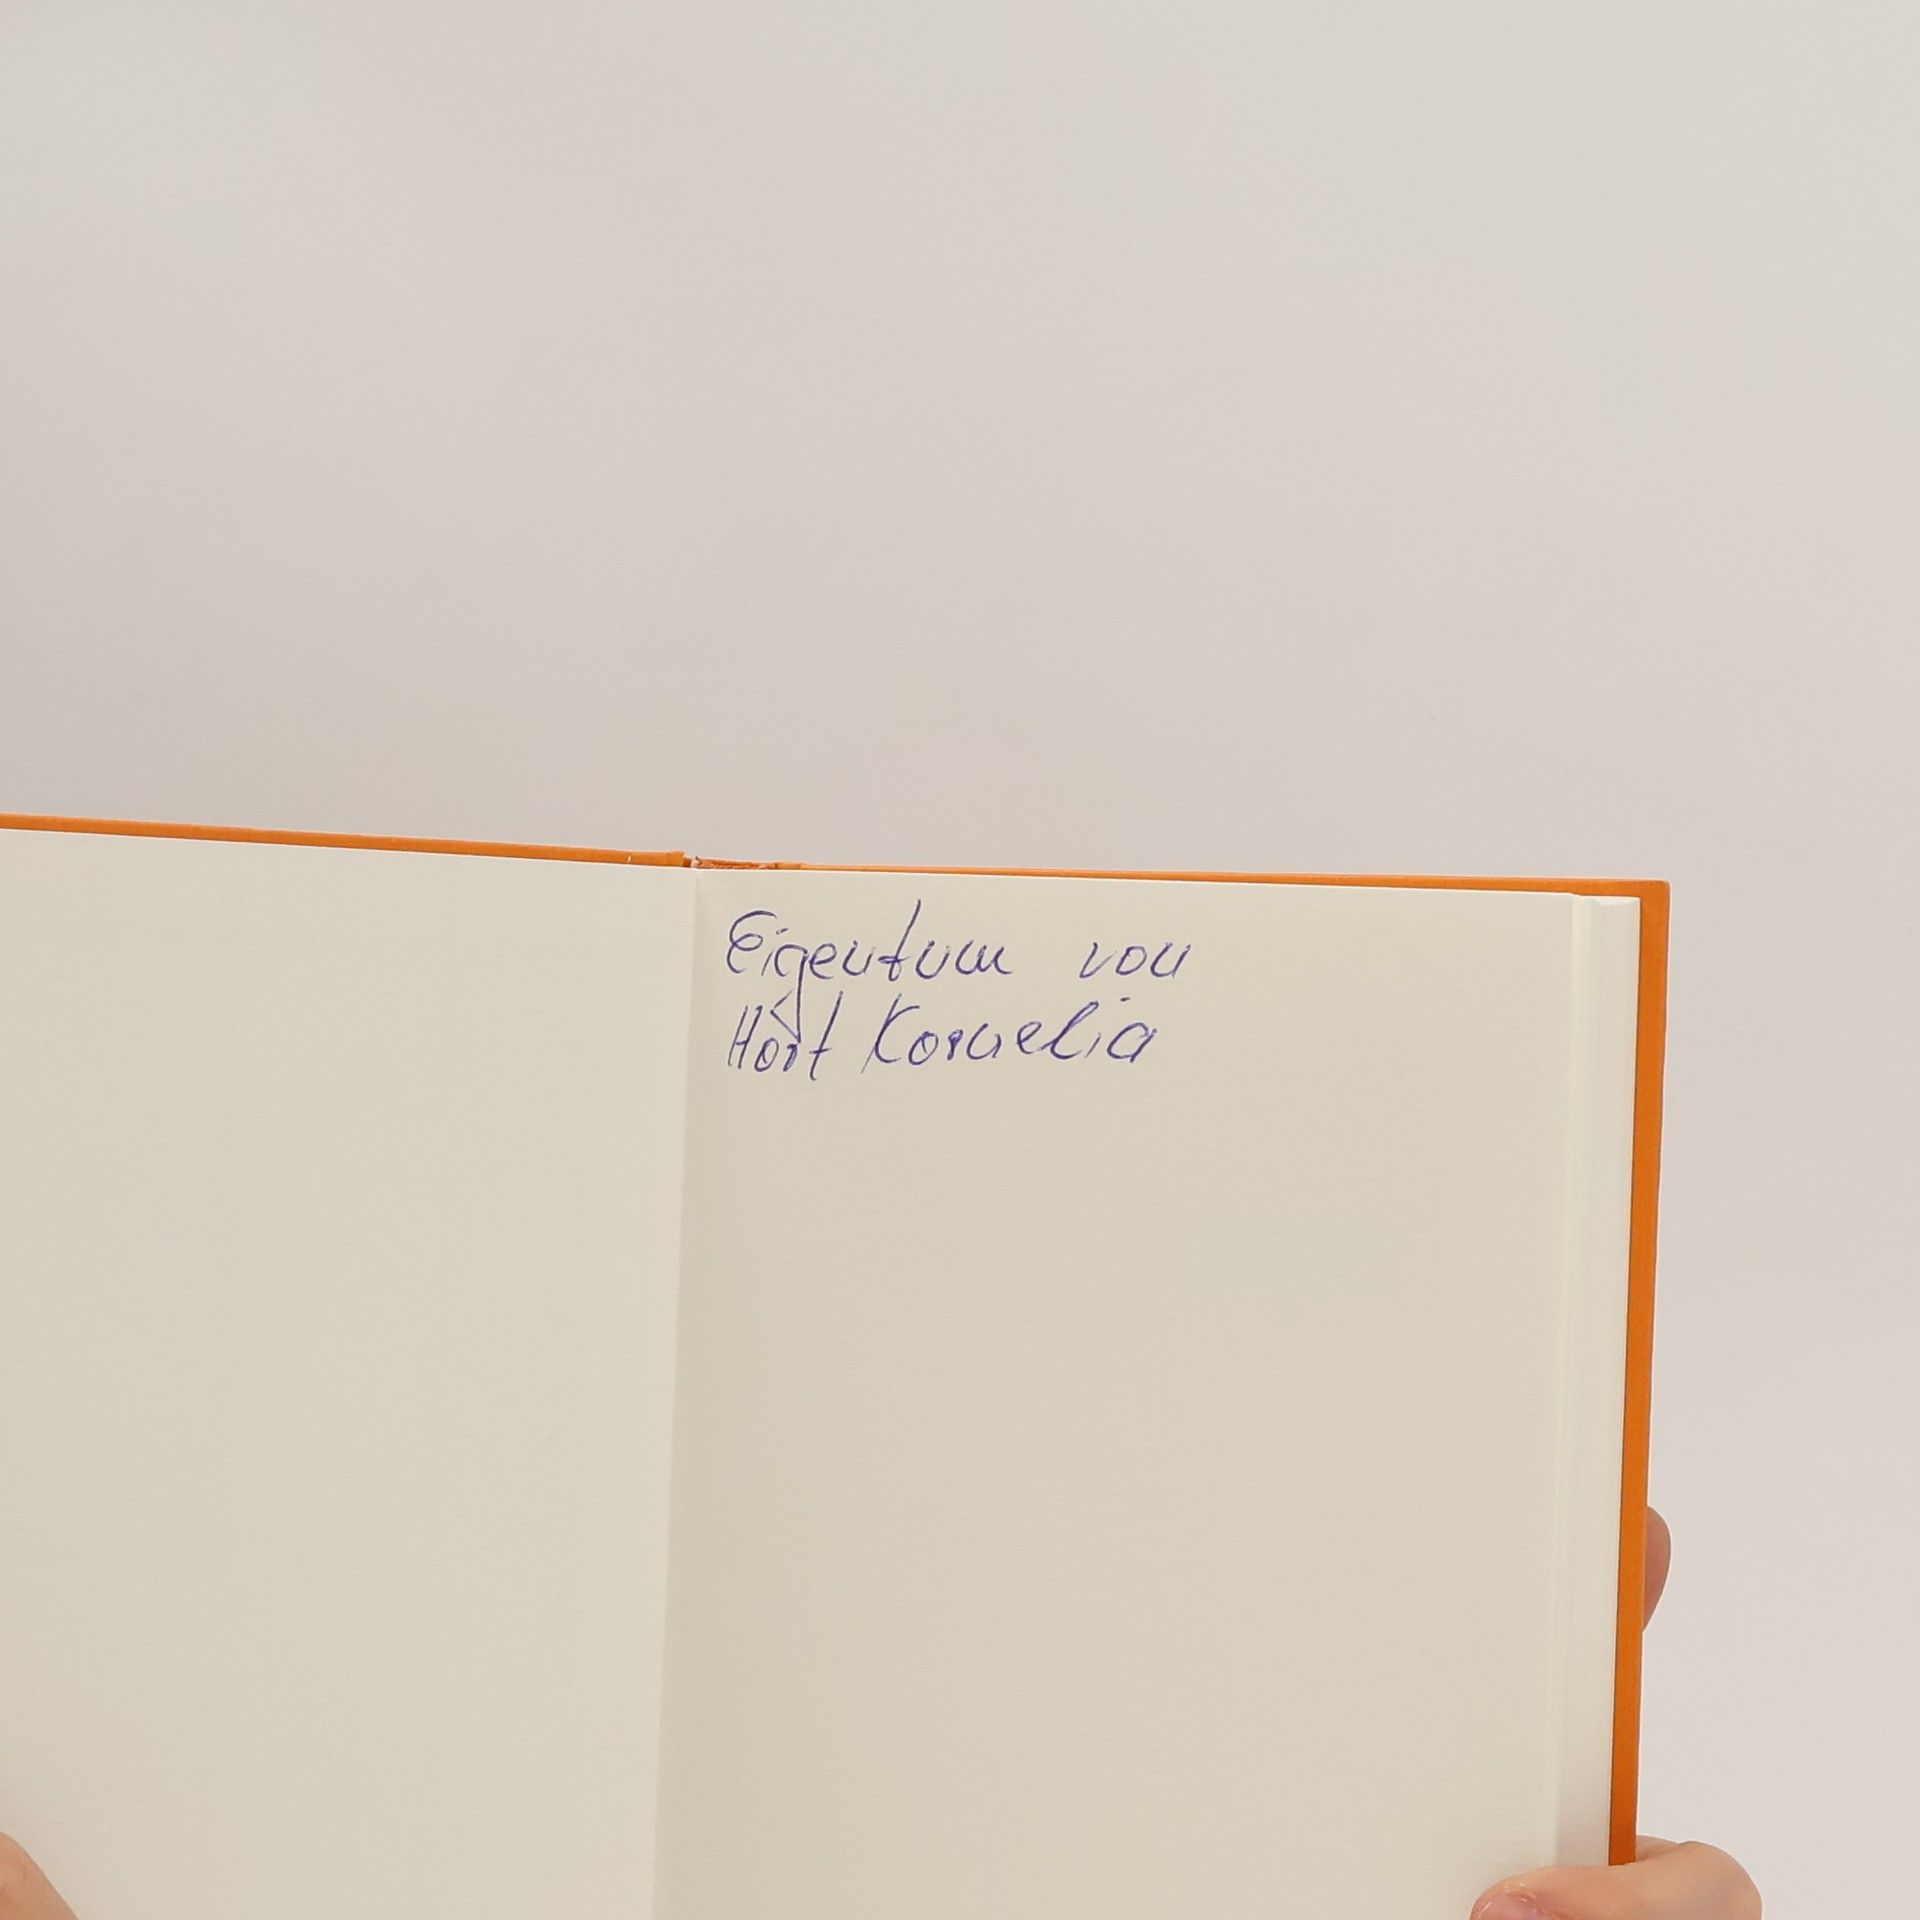 Eigentum von
Hört Kornelia